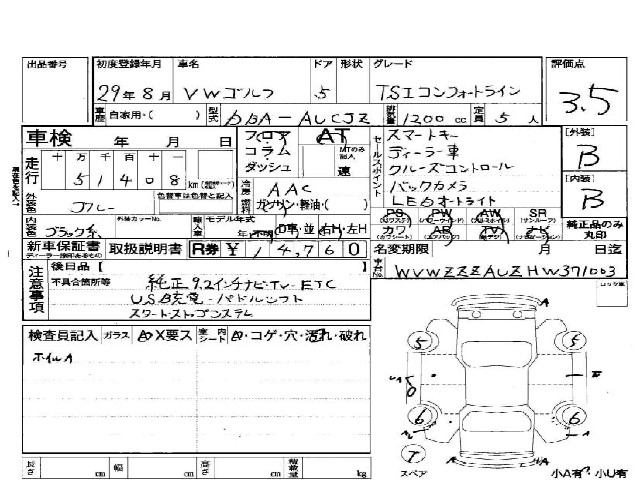 出品番号 初度登録年月 車名 ドア 形状 グレード 評価点
29年8月 VWゴルフ 5 TSIコンフォートライン 3.5
車歴 自家用・( ) 型式 DBA-AUCJZ 排気量 1200 cc 定員 5 人
車検 年 月 日 フロア AT セールスポイント スマートキー [外装] B
走行 十 万 千 百 十 一 コラム・ MTのみ記入 ディーラー車
5 1 4 0 8 km ダッシュ 速 クルーズコントロール [内装] B
外装色 ブルー 色替車は色替と記入 冷房 AAC バックカメラ
燃料 ガソリン・軽油・( ) LEDオートライト
内装色 ブラック系 外装カラーNo. 輸入車 モデル年式 D車・並 右H・左H
PS PW AW SR
カワ AB TV ナビ 純正品のみ丸印
新車保証書 取扱説明書 R券 ¥14,760 名変期限 月 日迄
ディーラー捺印があるもの
注意事項 後日品【 】 車台No. WVWZZZAUZHW371003
不具合箇所等 純正9.2インチナビ-TV-ETC
USB充電-パドルシフト
スタートストップシステム
検査員記入 ガラス A・X要ス 室内シート A・コゲ・穴・汚れ・破れ
ホイルA
5 5
6 6
スペア
長さ cm 幅 cm 高さ cm 積載量 kg 小A有 小U有